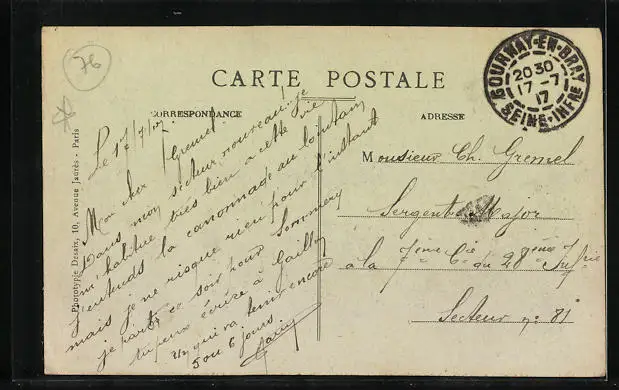 76
CARTE POSTALE
CORRESPONDANCE
ADRESSE
GOURNAY-EN-BRAY
20 30
17-7
17
SEINE-INFRE
Phototypie Desaix, 10, Avenue Jaurès - Paris
Le 17/7/17.
Mon cher Gremel.
Dans mon secteur nouveau, je
m'habitue très bien a cette vie
J'entends la canonnade au lointain
mais je ne risque rien pour l'instant
je pars ce soir pour Sommery
tu peux écrire à Gailly
qui va tenir encore
5 ou 6 jours.
Monsieur Ch. Gremel
Sergent Major
a la 7eme Cie du 28eme Inf rie
Secteur no 81